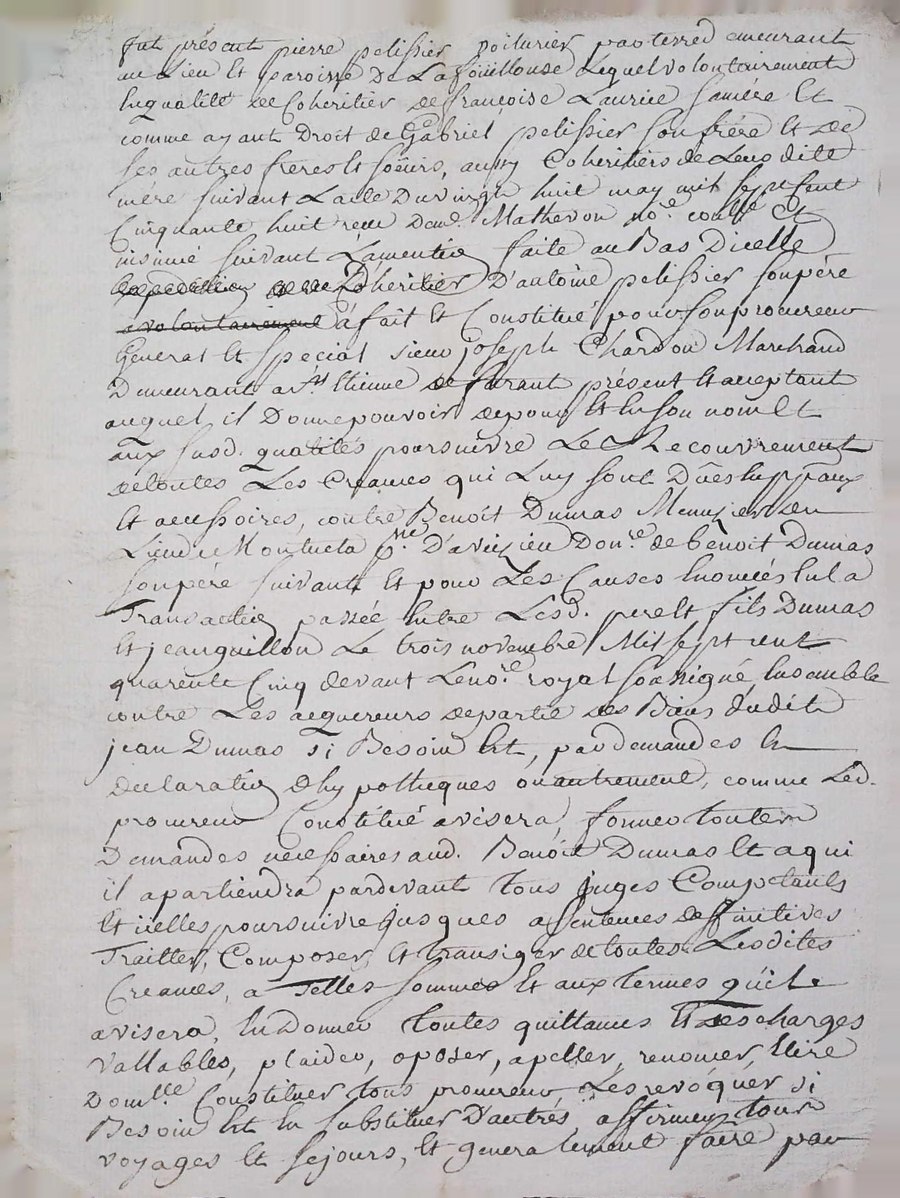 fut présent pierre pelissier voiturier par terre demeurant
au Lieu et paroisse De Lafoüillouse Lequel volontairement
En qualité de Coheritier de françoise Laurice sa mére Et
comme ayant Droit de Gabriel pelissier son frére Et de
ses autres fréres Et soeurs, aussy Coheritiers de Leurs dite
mére suivant L'acte Du vingt huit may mil sept Cent
Cinquante huit receu Me Mathevon no.re Et
insinué suivant La mention faite au Bas D'icelle
Coheritier D'antoine pelissier son pére
volontairement a fait Et Constitué pour son procureur
General Et special sieur joseph Chardon Marchand
Demeurant a st Etienne de furant présent Et acceptant
auquel il Donne pouvoir de pour Et En son nom Et
aux susd. qualités poursuivre Le Recouvrement
de toutes Les Creances qui Luy sont Dües En ppaux
Et accessoires, contre Benoit Dumas Menusier du
Lieu de Montucla D'aveizieu Don.re de benoit Dumas
son pére suivant Et pour Les Causes Enoncées En La
Transaction passée Entre Lesd. pere Et fils Dumas
Et jean guillon Le trois novembre Mil sept cent
quarente Cinq devant Le no.re royal soussigné Ensemble
contre Les acquereurs de partie des Biens dudit
jean Dumas si Besoin Est, par demandes En
declaration d'hypotheques ou autrement, comme Led.
procureur Constitué avisera, former toutes
Demandes necessaires aud. Benoit Dumas Et a qui
il apartiendra pardevant tous juges Competants
Et icelles poursuivre jusques a sentences deffinitives
Traitter, Composer Et transiger de toutes Lesdites
Creances, a Telles sommes Et aux termes qu'il
avisera, En Donner toutes quittances Et Descharges
vallables, plaider, oposer, apeller, renoncer, Elire
Dom.lle Constituer tous procureur, Les revoquér si
Besoin Est En substituer D'autrés, affirmer tous
voyages Et sejours, Et generalement faire par